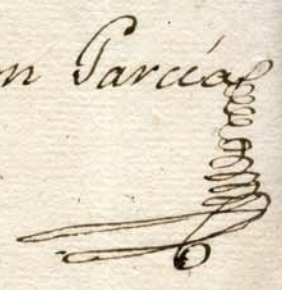 n Garcia